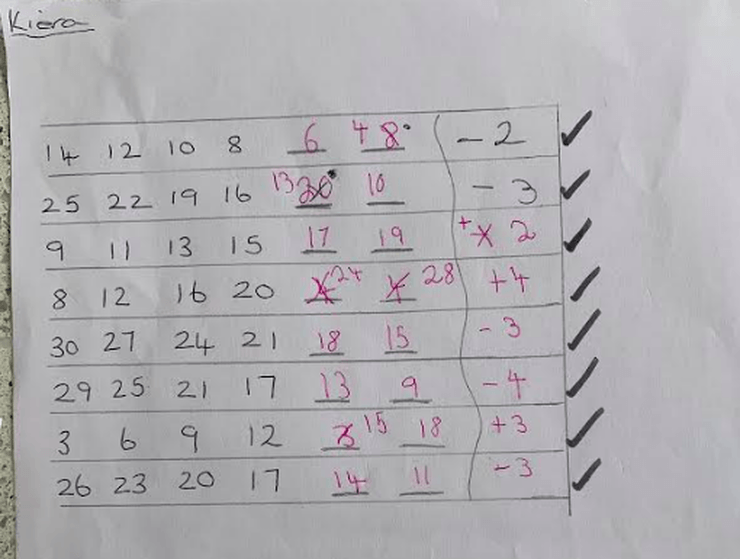 Kiera
14 12 10 8 6 4 8 - 2
25 22 19 16 13 30 10 - 3
9 11 13 15 17 19 + x 2
8 12 16 20 4 24 4 28 +4
30 27 24 21 18 15 - 3
29 25 21 17 13 9 - 4
3 6 9 12 3 15 18 +3
26 23 20 17 14 11 - 3